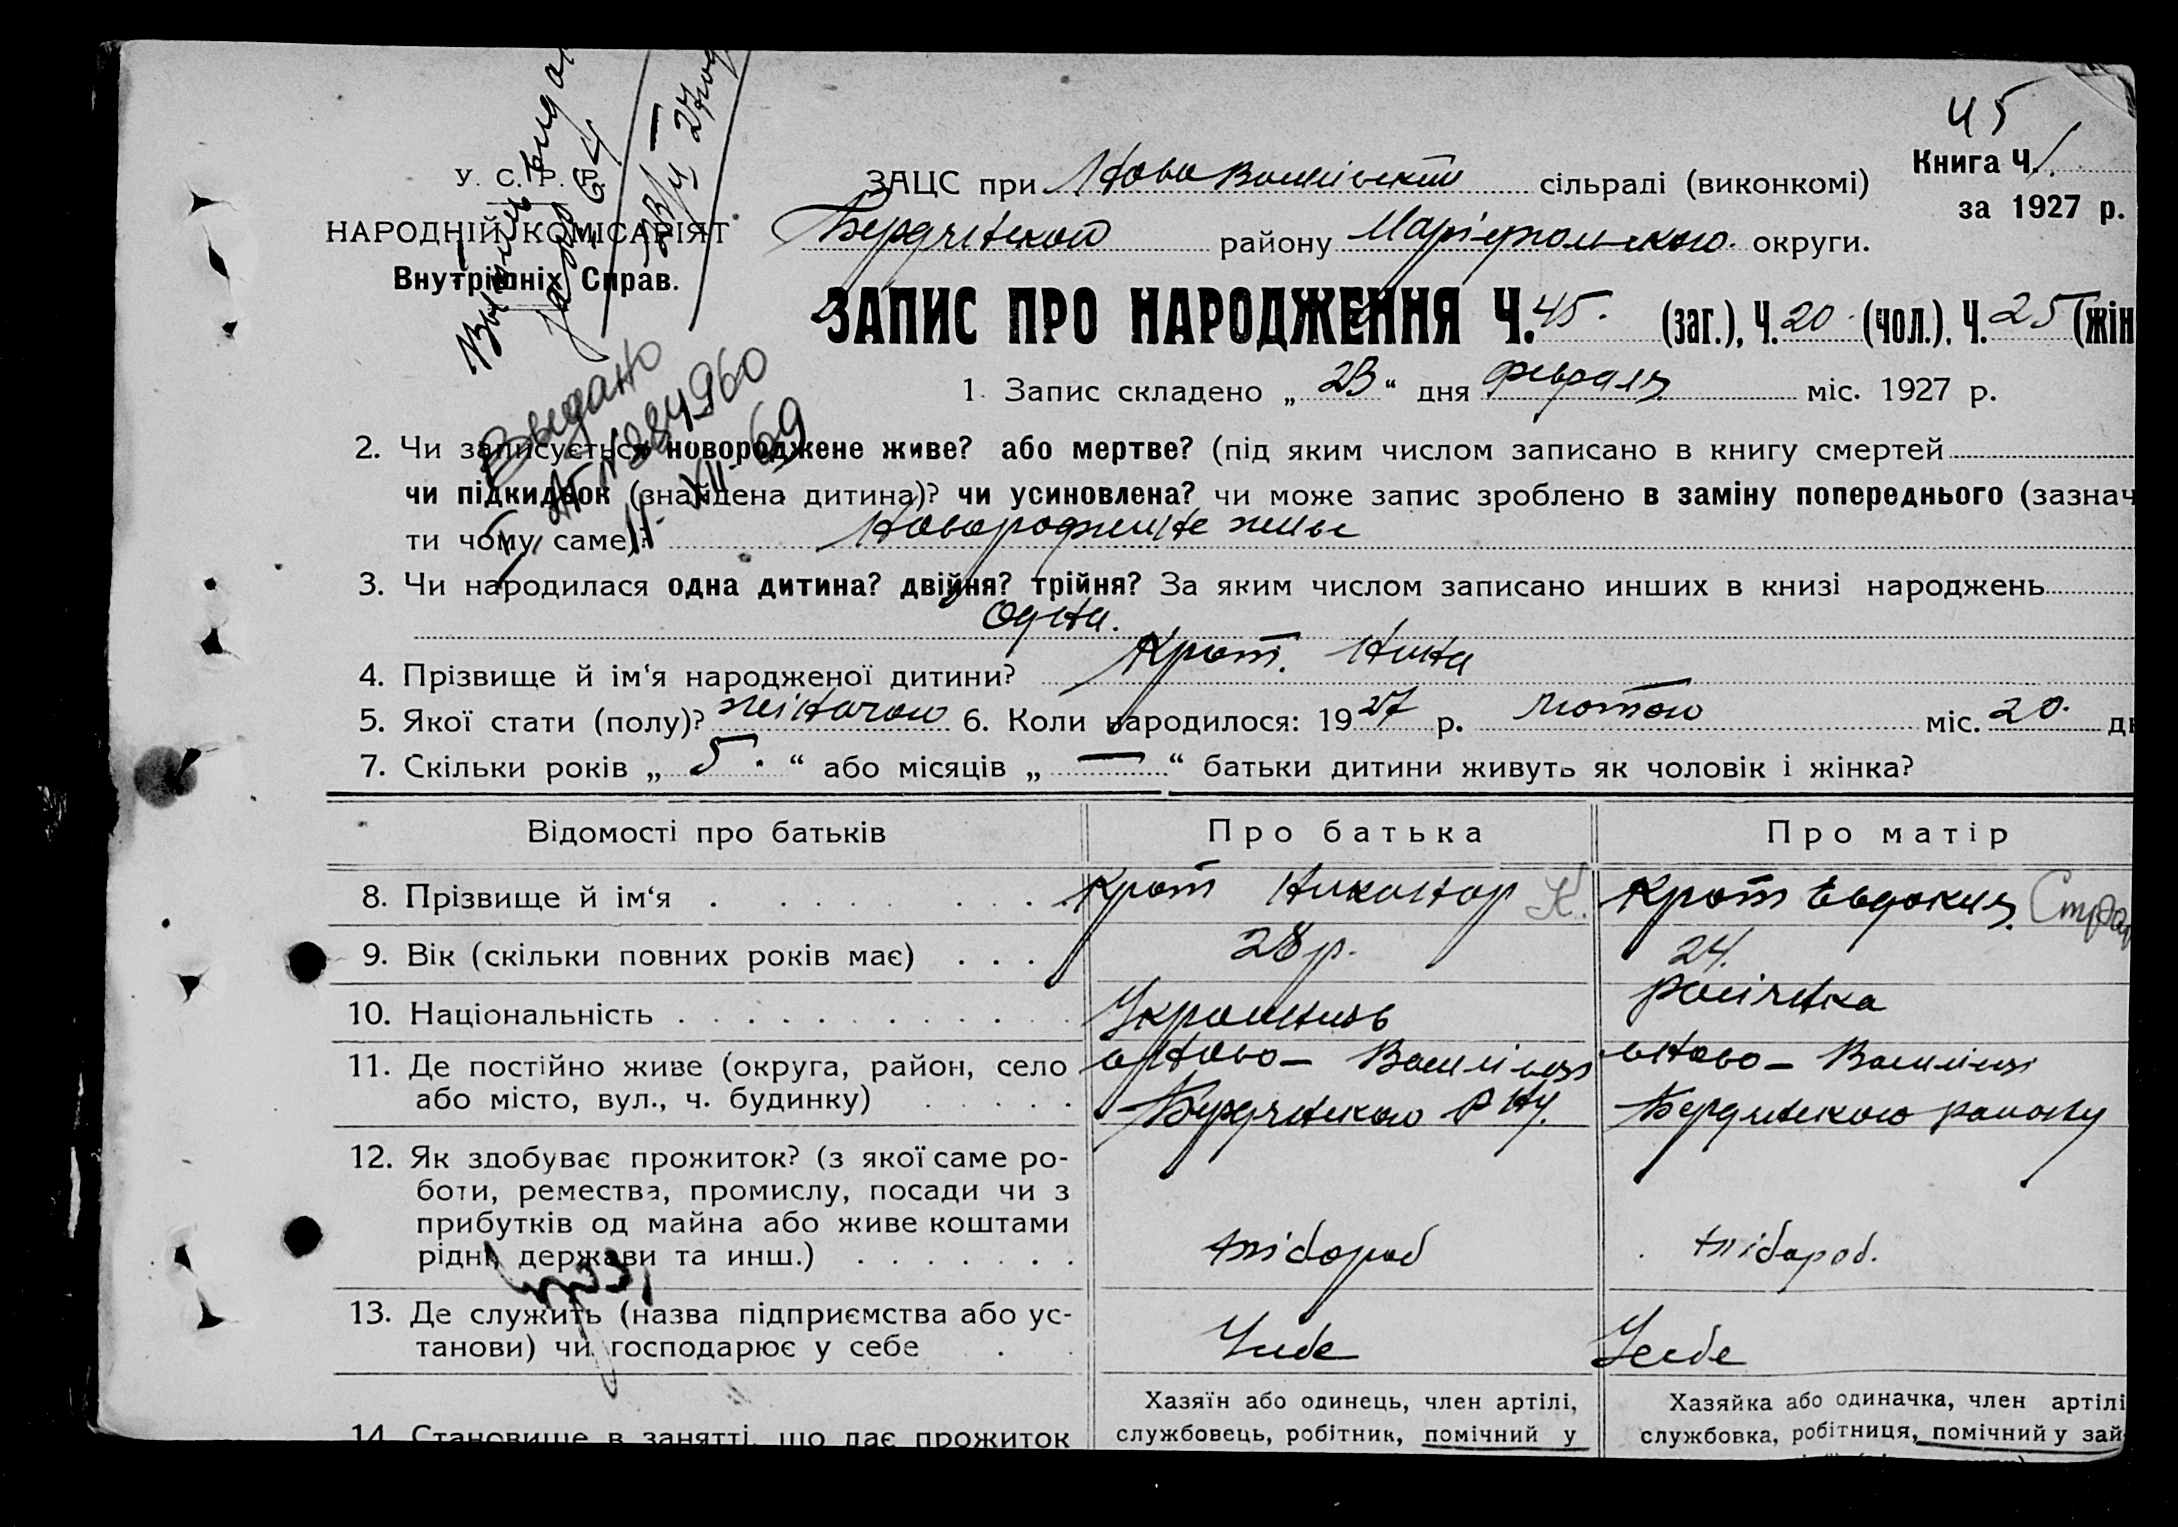 45
Книга Ч. 1.
за 1927 р.
У. С. Р. Р.
НАРОДНІЙ КОМІСАРІЯТ
Внутрішніх Справ.
Выдано
№ 284960
11. XII 69
ЗАЦС при Ново Василівський сільраді (виконкомі)
Бердянского району Маріупольского округи.
ЗАПИС ПРО НАРОДЖЕННЯ Ч. 45. (заг.), Ч. 20 (чол.), Ч. 25 (жін
1. Запис складено „ 23 “ дня февраля міс. 1927 р.
2. Чи записується новороджене живе? або мертве? (під яким числом записано в книгу смертей
чи підкидьок (знайдена дитина)? чи усиновлена? чи може запис зроблено в заміну попереднього (зазнач
ти чому саме)? Новороджене живе
3. Чи народилася одна дитина? двійня? трійня? За яким числом записано инших в книзі народжень
Одна.
4. Прізвище й ім‘я народженої дитини? Крот. Нина
5. Якої стати (полу)? жіночого 6. Коли народилося: 1927 р. лютого міс. 20. дн
7. Скільки років „ 5. “ або місяців „ — “ батьки дитини живуть як чоловік і жінка?
Відомості про батьків Про батька Про матір
8. Прізвище й ім‘я Крот Никонор К. Крот Евдокия Стра
9. Вік (скільки повних років має) 28 р. 24.
10. Національність Українець росіянка
11. Де постійно живе (округа, район, село Ново- Василівці Ново- Василівці
або місто, вул., ч. будинку) Бердянского Р НУ. Бердянского району
12. Як здобуває прожиток? (з якої саме ро-
боти, ремества, промислу, посади чи з
прибутків од майна або живе коштами
рідні, держави та инш.) хлібороб хлібороб.
13. Де служить (назва підприємства або ус-
танови) чи господарює у себе У себе У себе
Хазяїн або одинець, член артілі, Хазяйка або одиначка, член артілі
14. Становище в занятті, що дає прожиток службовець, робітник, помічний у службовка, робітниця, помічний у зай